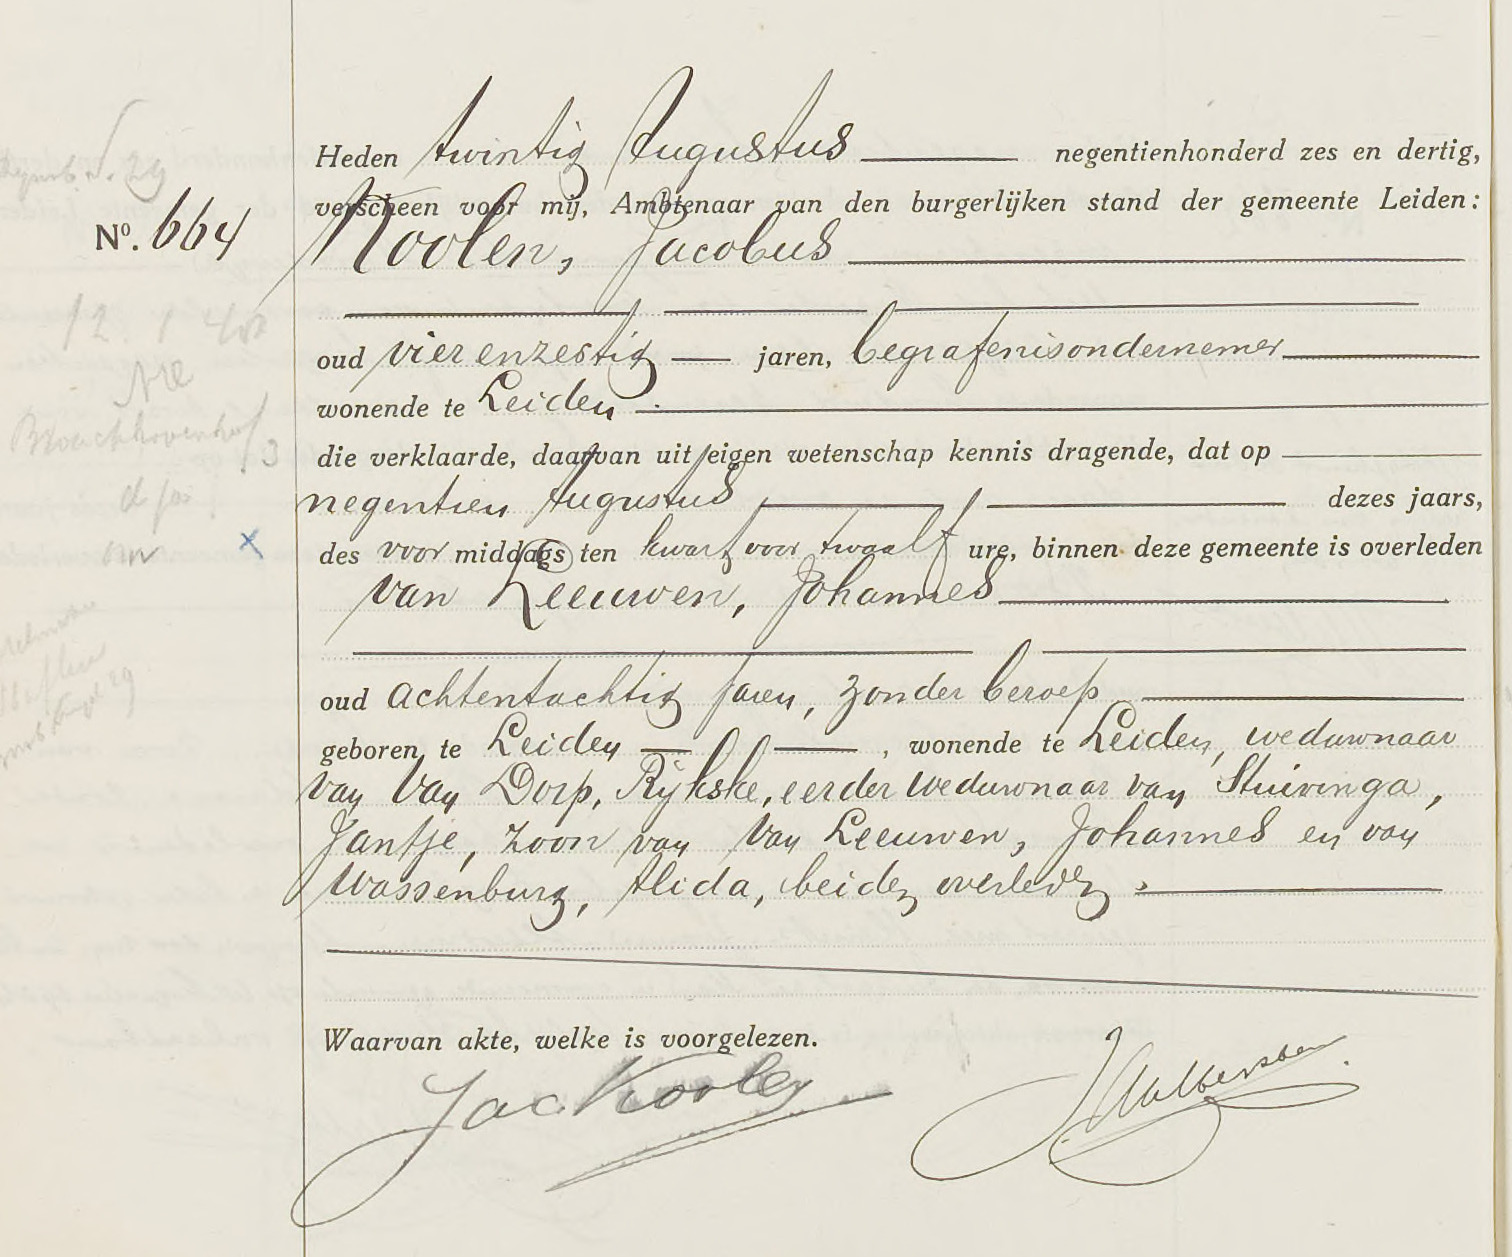 Heden twintig Augustus negentienhonderd zes en dertig,
verscheen voor mij, Ambtenaar van den burgerlijken stand der gemeente Leiden:
No. 664
Koolen, Jacobus
oud vierenzestig jaren, begrafenisondernemer
wonende te Leiden
die verklaarde, daarvan uit eigen wetenschap kennis dragende, dat op
negentien Augustus dezes jaars,
des voor middags ten kwart voor twaalf ure, binnen deze gemeente is overleden
van Leeuwen, Johannes
oud achtentachtig jaren, zonder beroep
geboren te Leiden, wonende te Leiden, weduwnaar
van van Dorp, Rijkske, eerder weduwnaar van Stuivinga,
Jantje, zoon van van Leeuwen, Johannes en van
Wassenburg, Alida, beiden overleden.
Waarvan akte, welke is voorgelezen.
Jac Koolen